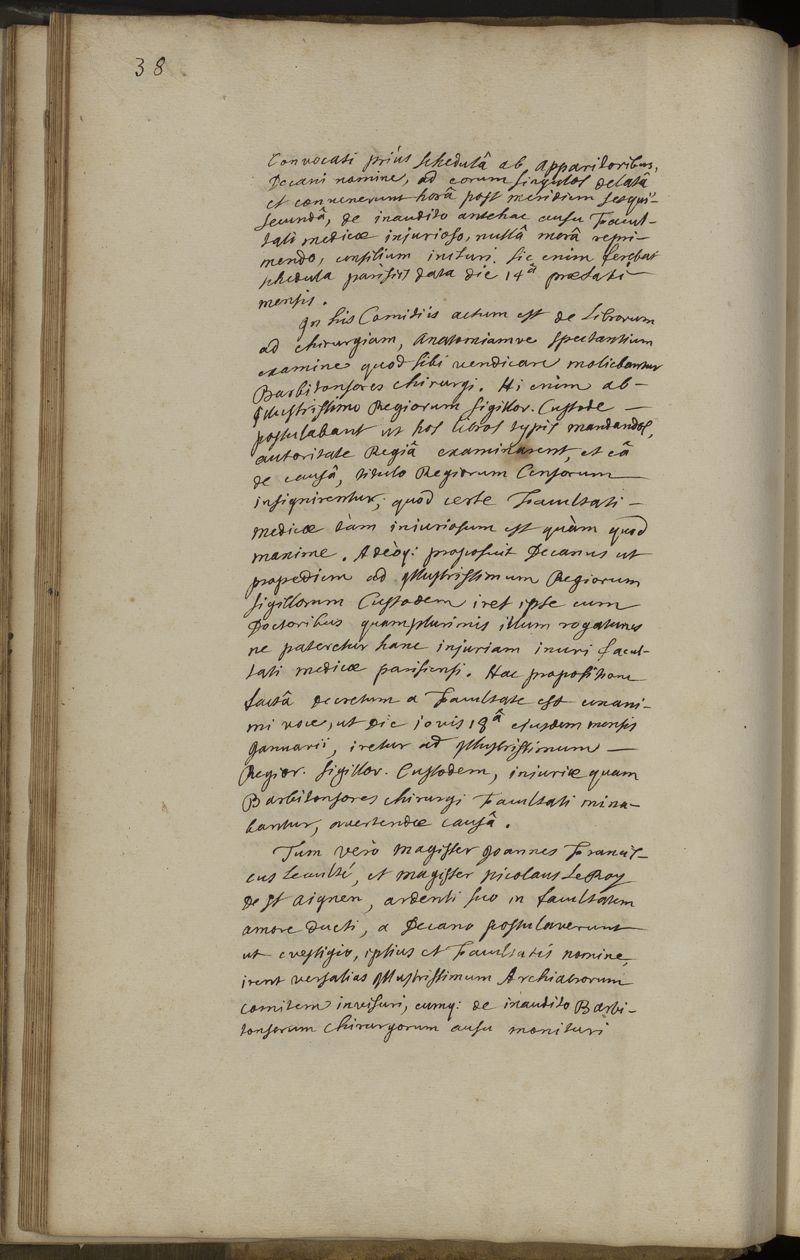 38
Convocati priùs schedulâ ab Apparitoribus,
Decani nomine, ad eorum singulos delatâ
et convenerunt horâ post meridiem sesqui-
secundâ, de inaudito antehac ausu Facul-
tati medicæ injurioso, nullâ morâ repri-
mendo, consilium inituri. sic enim ferebat
schedula parisiis data die 14â præfati
mensis.
In his Comitiis actum est de Librorum
ad chirurgiam, Anatomiamve spectantium
examine quod sibi vendicare moliebantur
Barbitonsores chirurgi. Hi enim ab-
illustrissimo Regiorum sigillor. Custode —
postulabant ut hos libros typis mandandos,
autoritate Regiâ examinarent, et eâ
de causâ, titulo Regiorum Censorum —
insignirentur; quod certe Facultati —
medicæ tàm injuriosum est quàm quod
maxime. Adeòq: proposuit Decanus ut
propediem ad illustrissimum Regiorum
sigillorum Custodem iret ipse cum
Doctoribus quamplurimis illum rogaturus
ne pateretur hanc injuriam inuri facul-
tati medicæ parisiensi. Hac propositione
factâ decretum a Facultate est unani-
mi voce, ut die jovis 18â ejusdem mensis
Januarii, iretur ad illustrissimum —
Regior. sigillor. Custodem, injuriæ quam
Barbitonsores chirurgi Facultati mina-
bantur, avertendæ causâ.
Tum verò magister Joannes Francis-
cus Leaulté, et magister Nicolaus LeRoy
de St Aignen, ardenti suo in facultatem
amore ducti, a Decano postulaverunt
ut e vestigio, ipsius et Facultatis nomine,
irent versalias illustrissimum Archiatrorum
comitem invisuri, eumq: de inaudito Barbi-
tonsorum chirurgorum ausu monituri